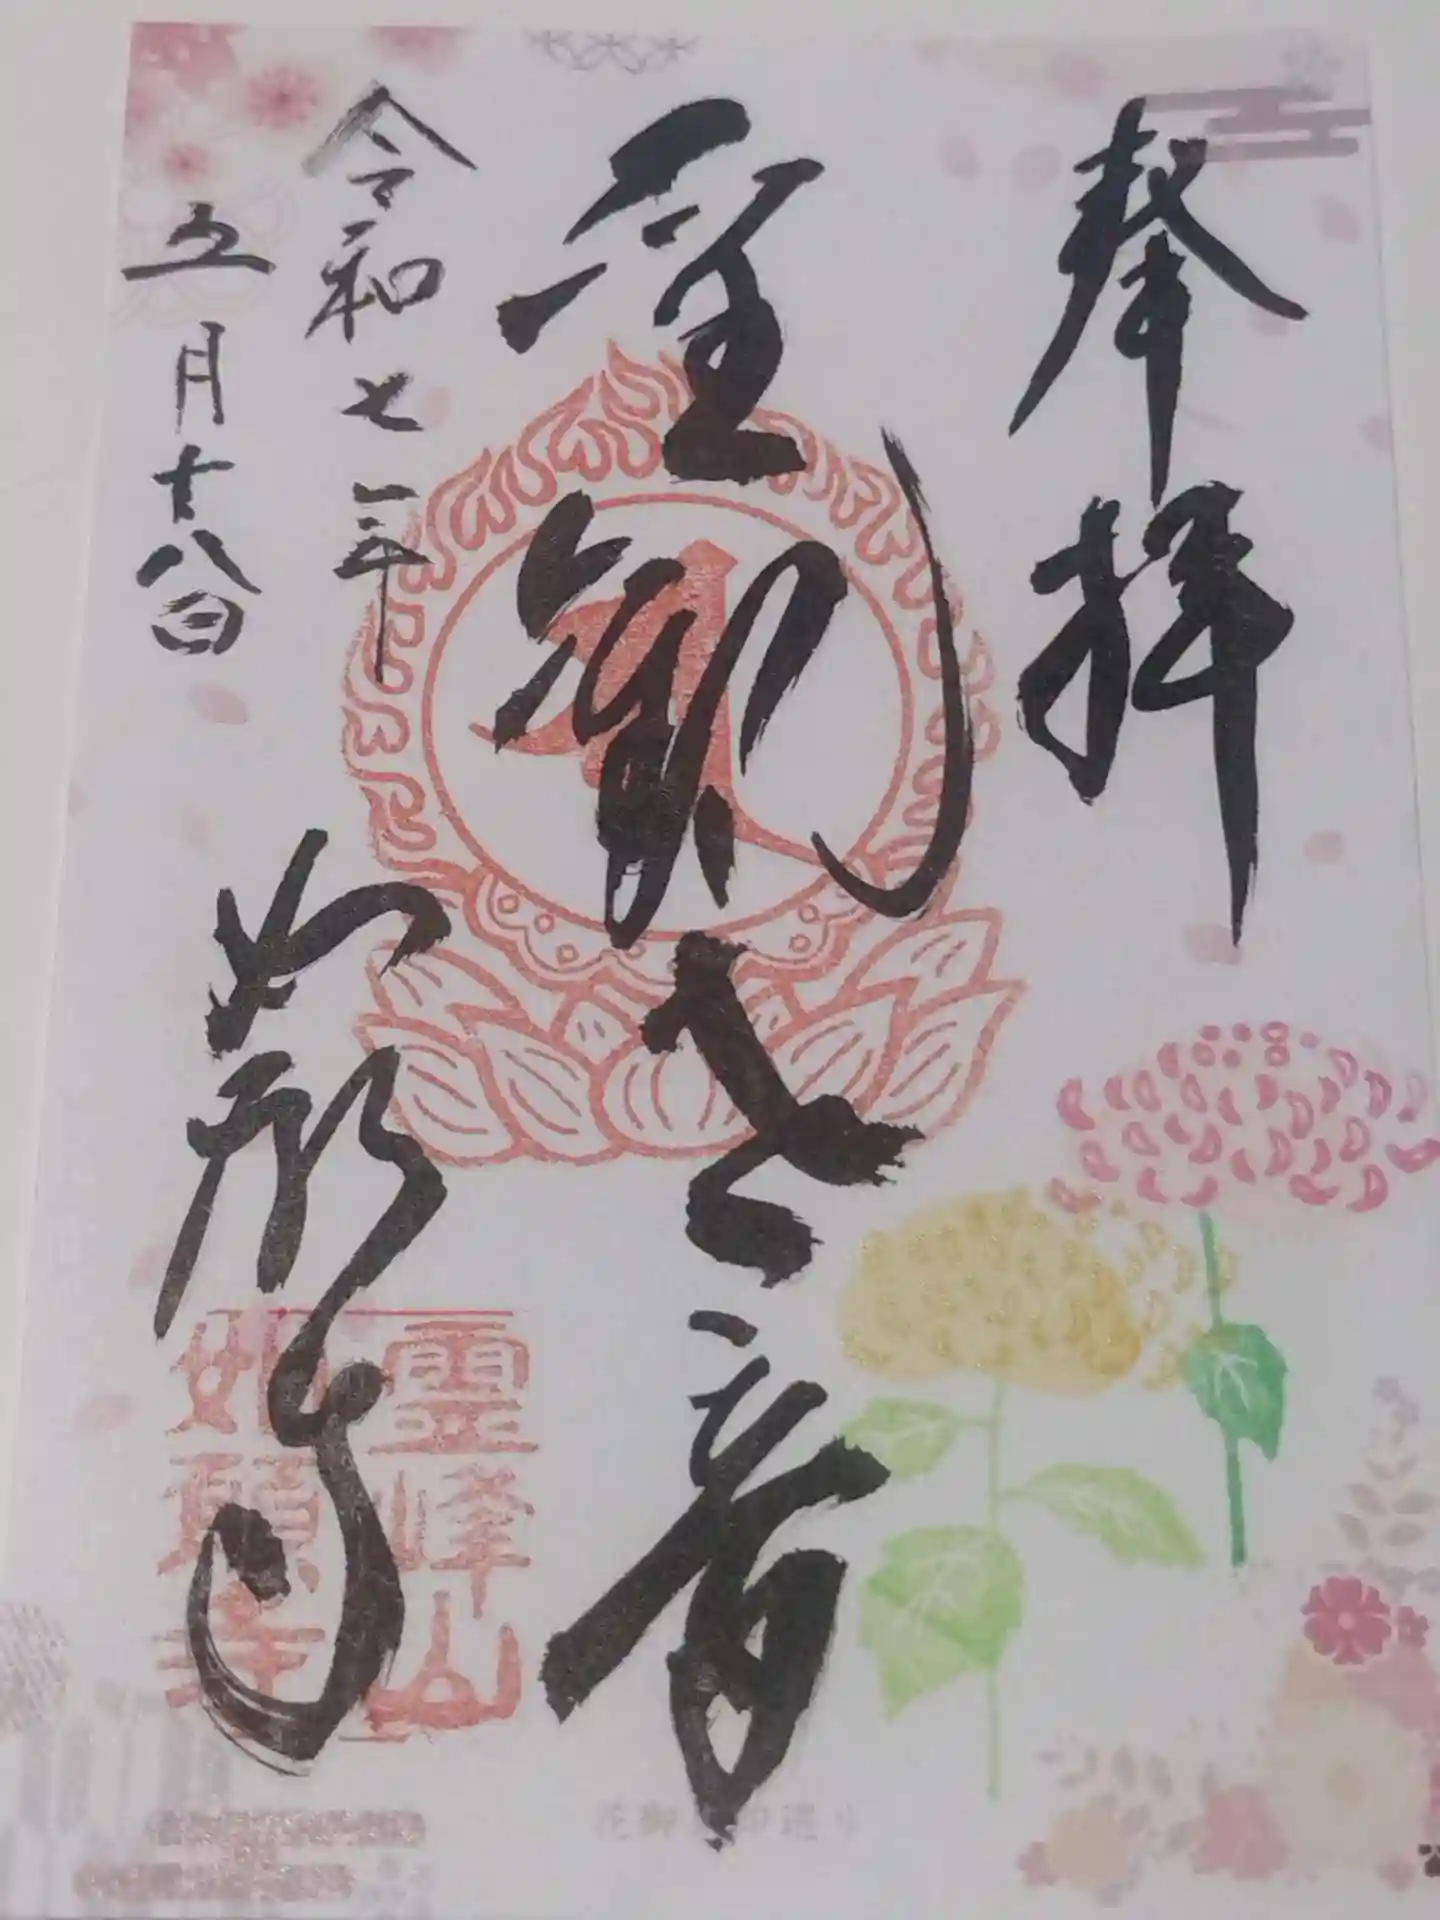 奉拝
聖観世音
令和七年
五月十八日
如願寺
霊峰山
如願寺
花御朱印巡り